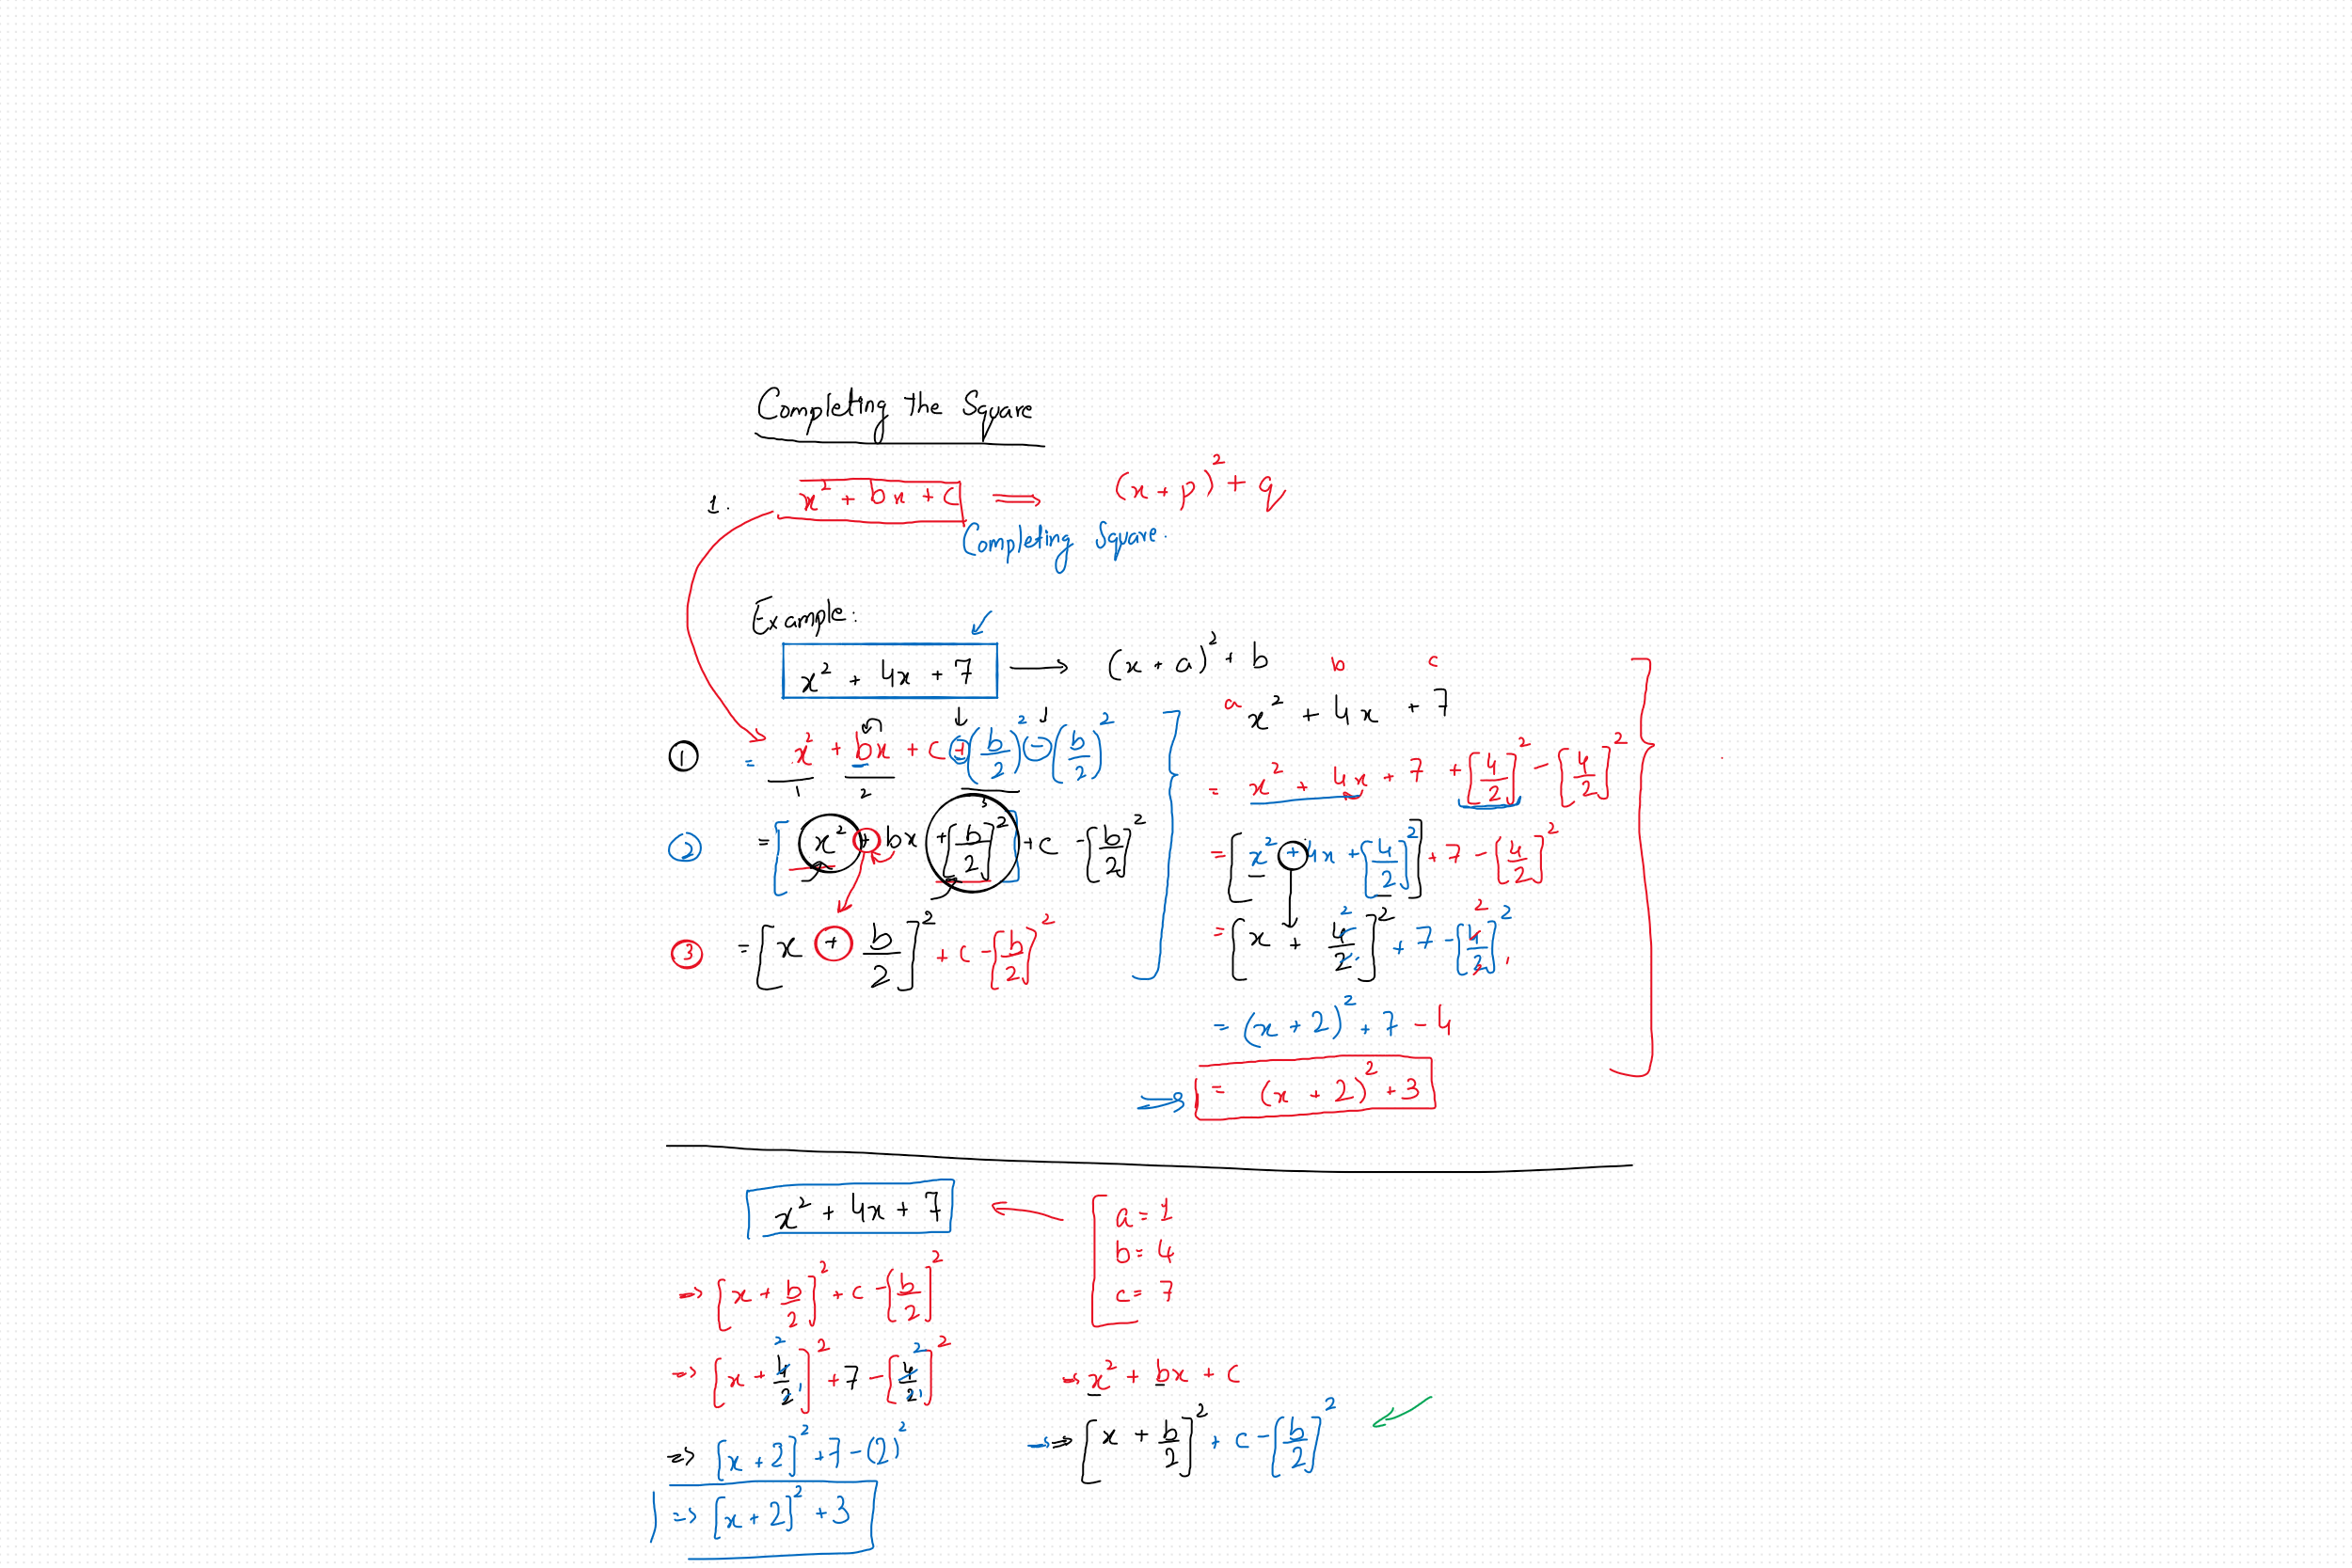 Completing the Square
1. x² + bx + c ⟹ (x + p)² + q
Completing Square.
Example:
x² + 4x + 7 ⟶ (x + a)² + b
① = x² + bx + c + (b/2)² - (b/2)²
1 2 3
② = [x² + bx + [b/2]²] + c - [b/2]²
③ = [x + b/2]² + c - [b/2]²
a b c
x² + 4x + 7
= x² + 4x + 7 + [4/2]² - [4/2]²
= [x² + 4x + [4/2]²] + 7 - [4/2]²
= [x + 4/2]² + 7 - [4/2]²
2 2
= (x + 2)² + 7 - 4
⇒ = (x + 2)² + 3
x² + 4x + 7
⇒ [x + b/2]² + c - [b/2]²
⇒ [x + 4/2]² + 7 - [4/2]²
2 1 2 1
⇒ [x + 2]² + 7 - (2)²
⇒ [x + 2]² + 3
a = 1
b = 4
c = 7
⇒ x² + bx + c
⇒ ⇒ [x + b/2]² + c - [b/2]²